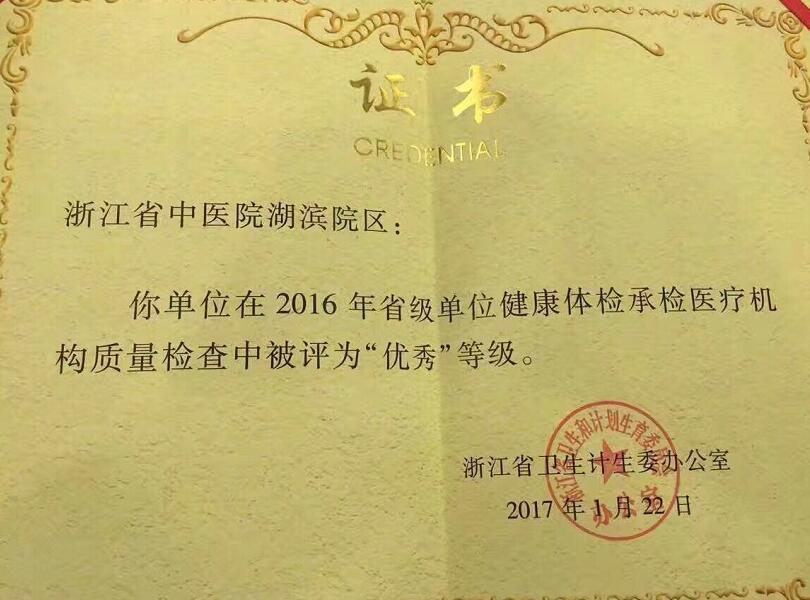 证书
CREDENTIAL
浙江省中医院湖滨院区:
你单位在2016年省级单位健康体检承检医疗机
构质量检查中被评为“优秀”等级。
浙江省卫生计生委办公室
2017年1月22日
浙江省卫生和计划生育委员会
办公室